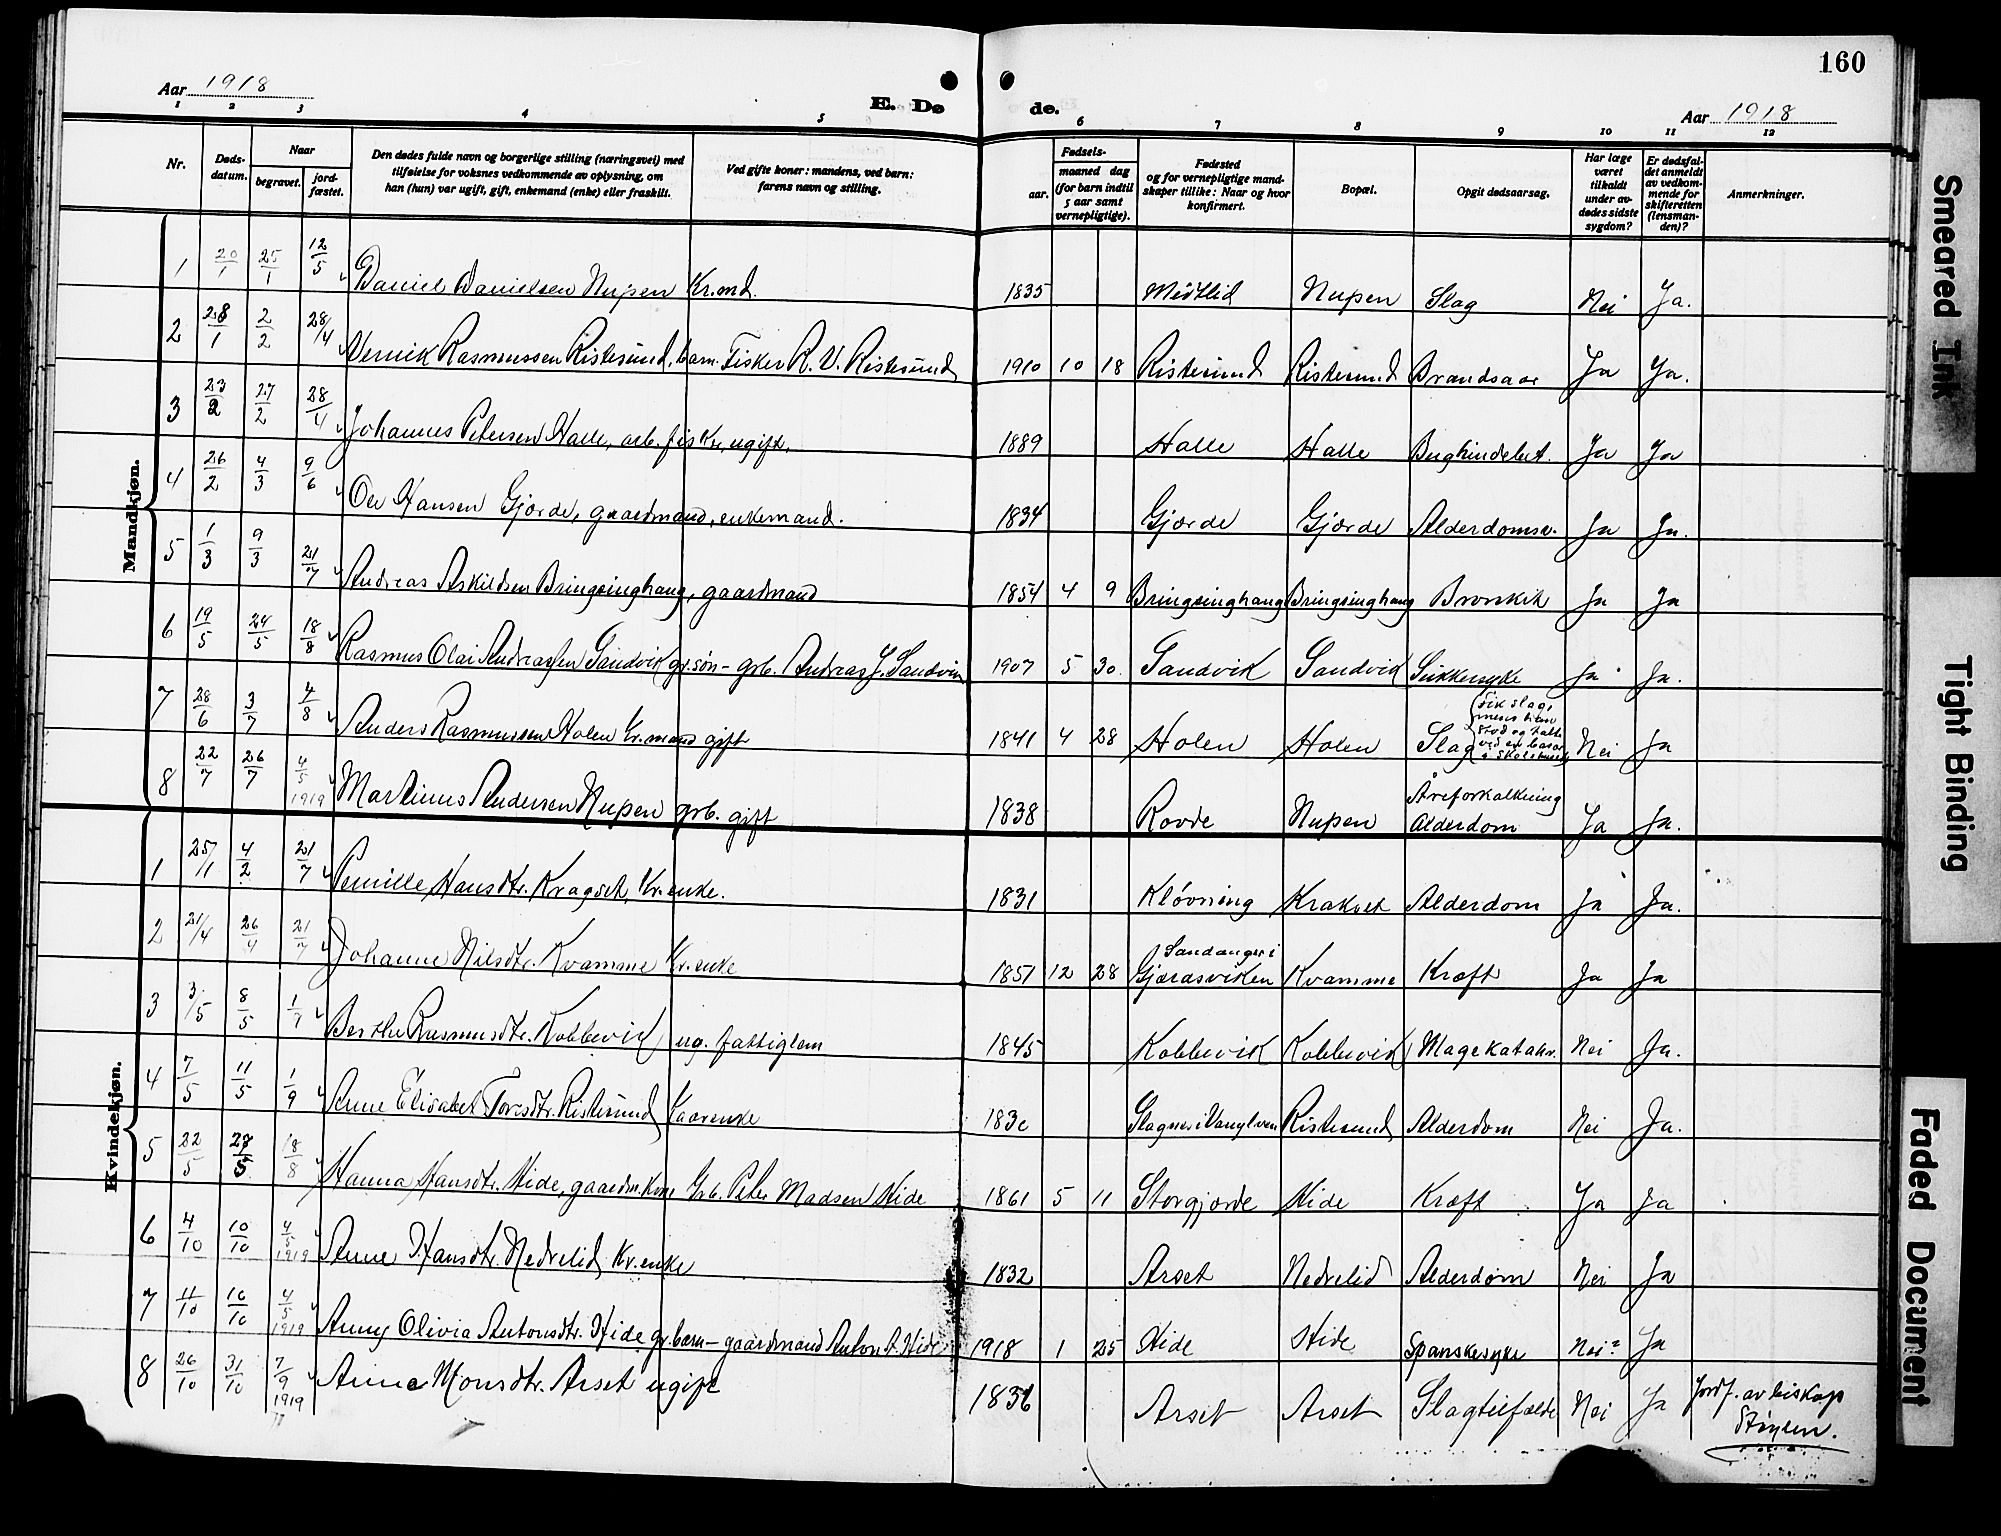 160
Aar 1918
E. Døde.
Aar 1918
1 2 3 4 5 6 7 8 9 10 11 12
Nr.
Døds-
datum.
Naar
begravet.
jord-
fæstet.
Den dødes fulde navn og borgerlige stilling (næringsvei) med
tilføielse for voksnes vedkommende av oplysning, om
han (hun) var ugift, gift, enkemand (enke) eller fraskilt.
Ved gifte koner: mandens, ved barn:
farens navn og stilling.
Fødsels-
aar. maaned dag
(for barn indtil
5 aar samt
vernepligtige).
Fødested
og for vernepligtige mand-
skaper tillike: Naar og hvor
konfirmert.
Bopæl.
Opgit dødsaarsag.
Har læge
været
tilkaldt
under av-
dødes sidste
sygdom?
Er dødsfal-
det anmeldt
av vedkom-
mende for
skifteretten
(lensman-
den)?
Anmerkninger.
Mandkjøn.
1 20/1 25/1 12/5 Daniel Danielsen Nupen Kr.md. 1835 Medtlid Nupen Slag Nei Ja.
2 28/1 2/2 28/4 Vernik Rasmussen Ristesund, barn. Fisker R. V. Ristesund 1910 10 18 Ristesund Ristesund Brandsaar Ja Ja.
3 23/2 27/2 28/4 Johannes Petersen Halle, arb. fisker, ugift. 1889 Halle Halle Bughindebet. Ja Ja
4 26/2 4/3 9/6 Ole Hansen Gjørde, gaardmand, enkemand. 1834 Gjørde Gjørde Alderdomsv. Ja Ja.
5 1/3 9/3 21/7 Andreas Askildsen Bringsinghaug, gaardmand 1854 4 9 Bringsinghaug Bringsinghaug Bronkit Ja Ja
6 19/5 24/5 18/8 Rasmus Olai Andreassen Sandvik gr.søn - grb. Andreas J. Sandvik 1907 5 30. Sandvik Sandvik Sukkersyke Ja Ja.
7 28/6 3/7 4/8 Anders Rasmussen Holen kr.mand gift 1841 4 28 Holen Holen Slag (fik slag, mens han stod og talte ved en basar i skolehuset) Nei Ja
8 22/7 26/7 4/5 1919 Martinus Andersen Nupen grb. gift 1838 Rovde Nupen Åreforkalkning Alderdom Ja Ja.
Kvindekjøn.
1 25/1 4/2 21/7 Pernille Hansdtr. Kragset, kr.enke. 1831 Kløvning Krakset Alderdom Ja Ja.
2 21/4 26/4 21/7 Johanne Nilsdtr. Kvamme kr.enke 1851 12 28 Gjærasviken Sandanger i Kvamme Kræft Ja Ja
3 3/5 8/5 1/9 Berthe Rasmusdtr. Kobbevik ug. fattiglem 1845 Kobbevik Kobbevik Magekatahr. Nei Ja.
4 7/5 11/5 1/9 Anne Elisabet Toresdtr. Ristesund kaarenke Slagnes i Vanylven Ristesund Alderdom Nei Ja.
5 22/5 28/5 18/8 Hanna Hansdtr. Hide, gaardm.kone Grb. Peter Madsen Hide 1861 5 11 Storgjorde Hide Kræft Ja Ja
6 4/10 10/10 4/5 1919 Anne Hansdtr. Nedrelid, kr.enke 1832 Arset Nedrelid Alderdom Nei Ja
7 11/10 16/10 4/5 1919 Anny Olivia Antonsdtr. Hide gr.barn - gaardmand Anton A. Hide 1918 1 25 Hide Hide Spanskesyke Nei Ja
8 26/10 31/10 7/9 1919 Anne Monsdtr. Arset ugift 1836 Arset Arset Slagtilfælde Nei Ja Jordf. av biskop Støylen.
Smeared Ink
Tight Binding
Faded Document